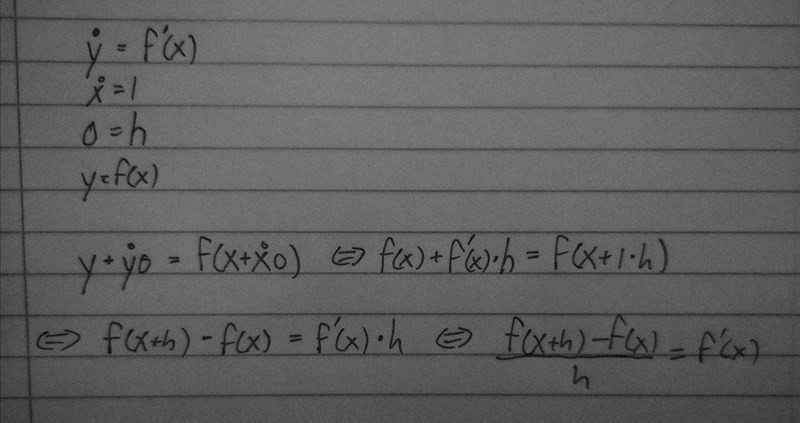 ẏ = f'(x)
ẋ = 1
o = h
y = f(x)
y + ẏo = f(x+ẋo) ⇔ f(x) + f'(x)·h = f(x+1·h)
⇔ f(x+h) - f(x) = f'(x)·h ⇔ f(x+h) - f(x) / h = f'(x)